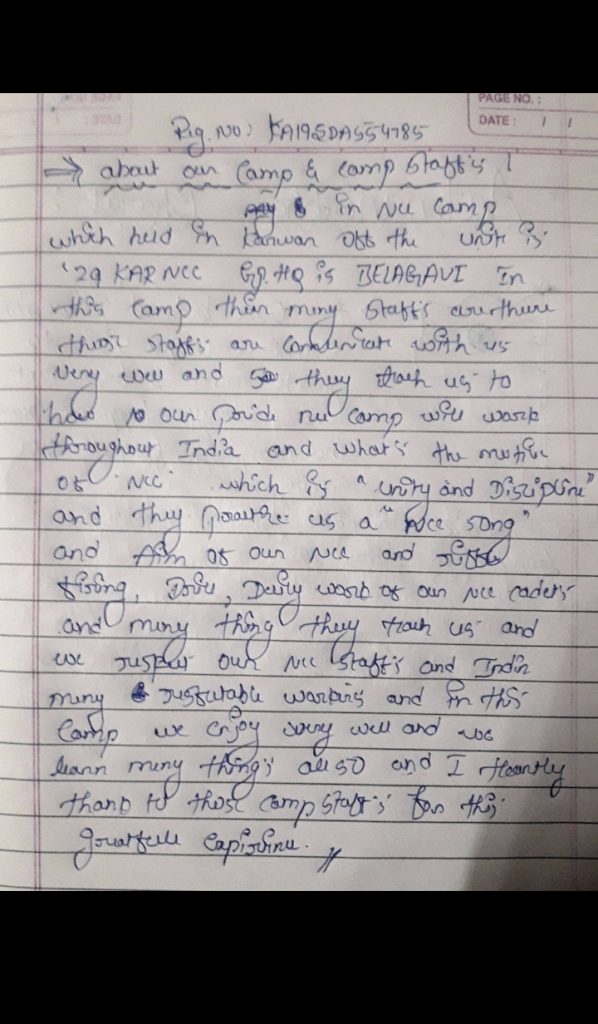 PAGE NO. :
DATE : / /
Rig. NO: KA19SDA554785
⇒ about our Camp & Camp Staff's !
in NCC Camp
which held in Karwar Off the unit is
'29 KAR NCC Gp. HQ is BELAGAVI In
this Camp then many staff's are there
those staff's are with us
very well and they teach us to
how our Pride ncc camp will work
throughout India and what's the motive
of NCC which is "unity and Discipline"
and they us a "Ncc song"
and Aim of our NCC and
firing, Drill, Daily work of our NCC cadets
and many thing they teach us and
we our NCC staff's and India
many workers and in this
Camp we enjoy very well and we
learn many thing's also and I Heartly
thank to those camp staff's for this